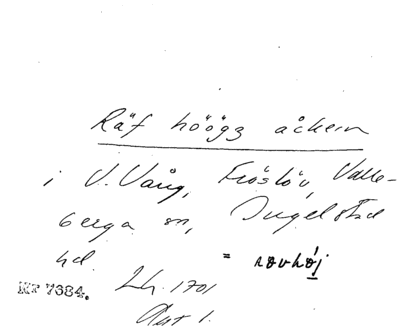 Räf höögz åckern
i V. Vång, Fröslöv, Valle-
berga sn, Ingelstad
hd.
= rovhöj
NP 7384. Lh. 1701
Akt 1.